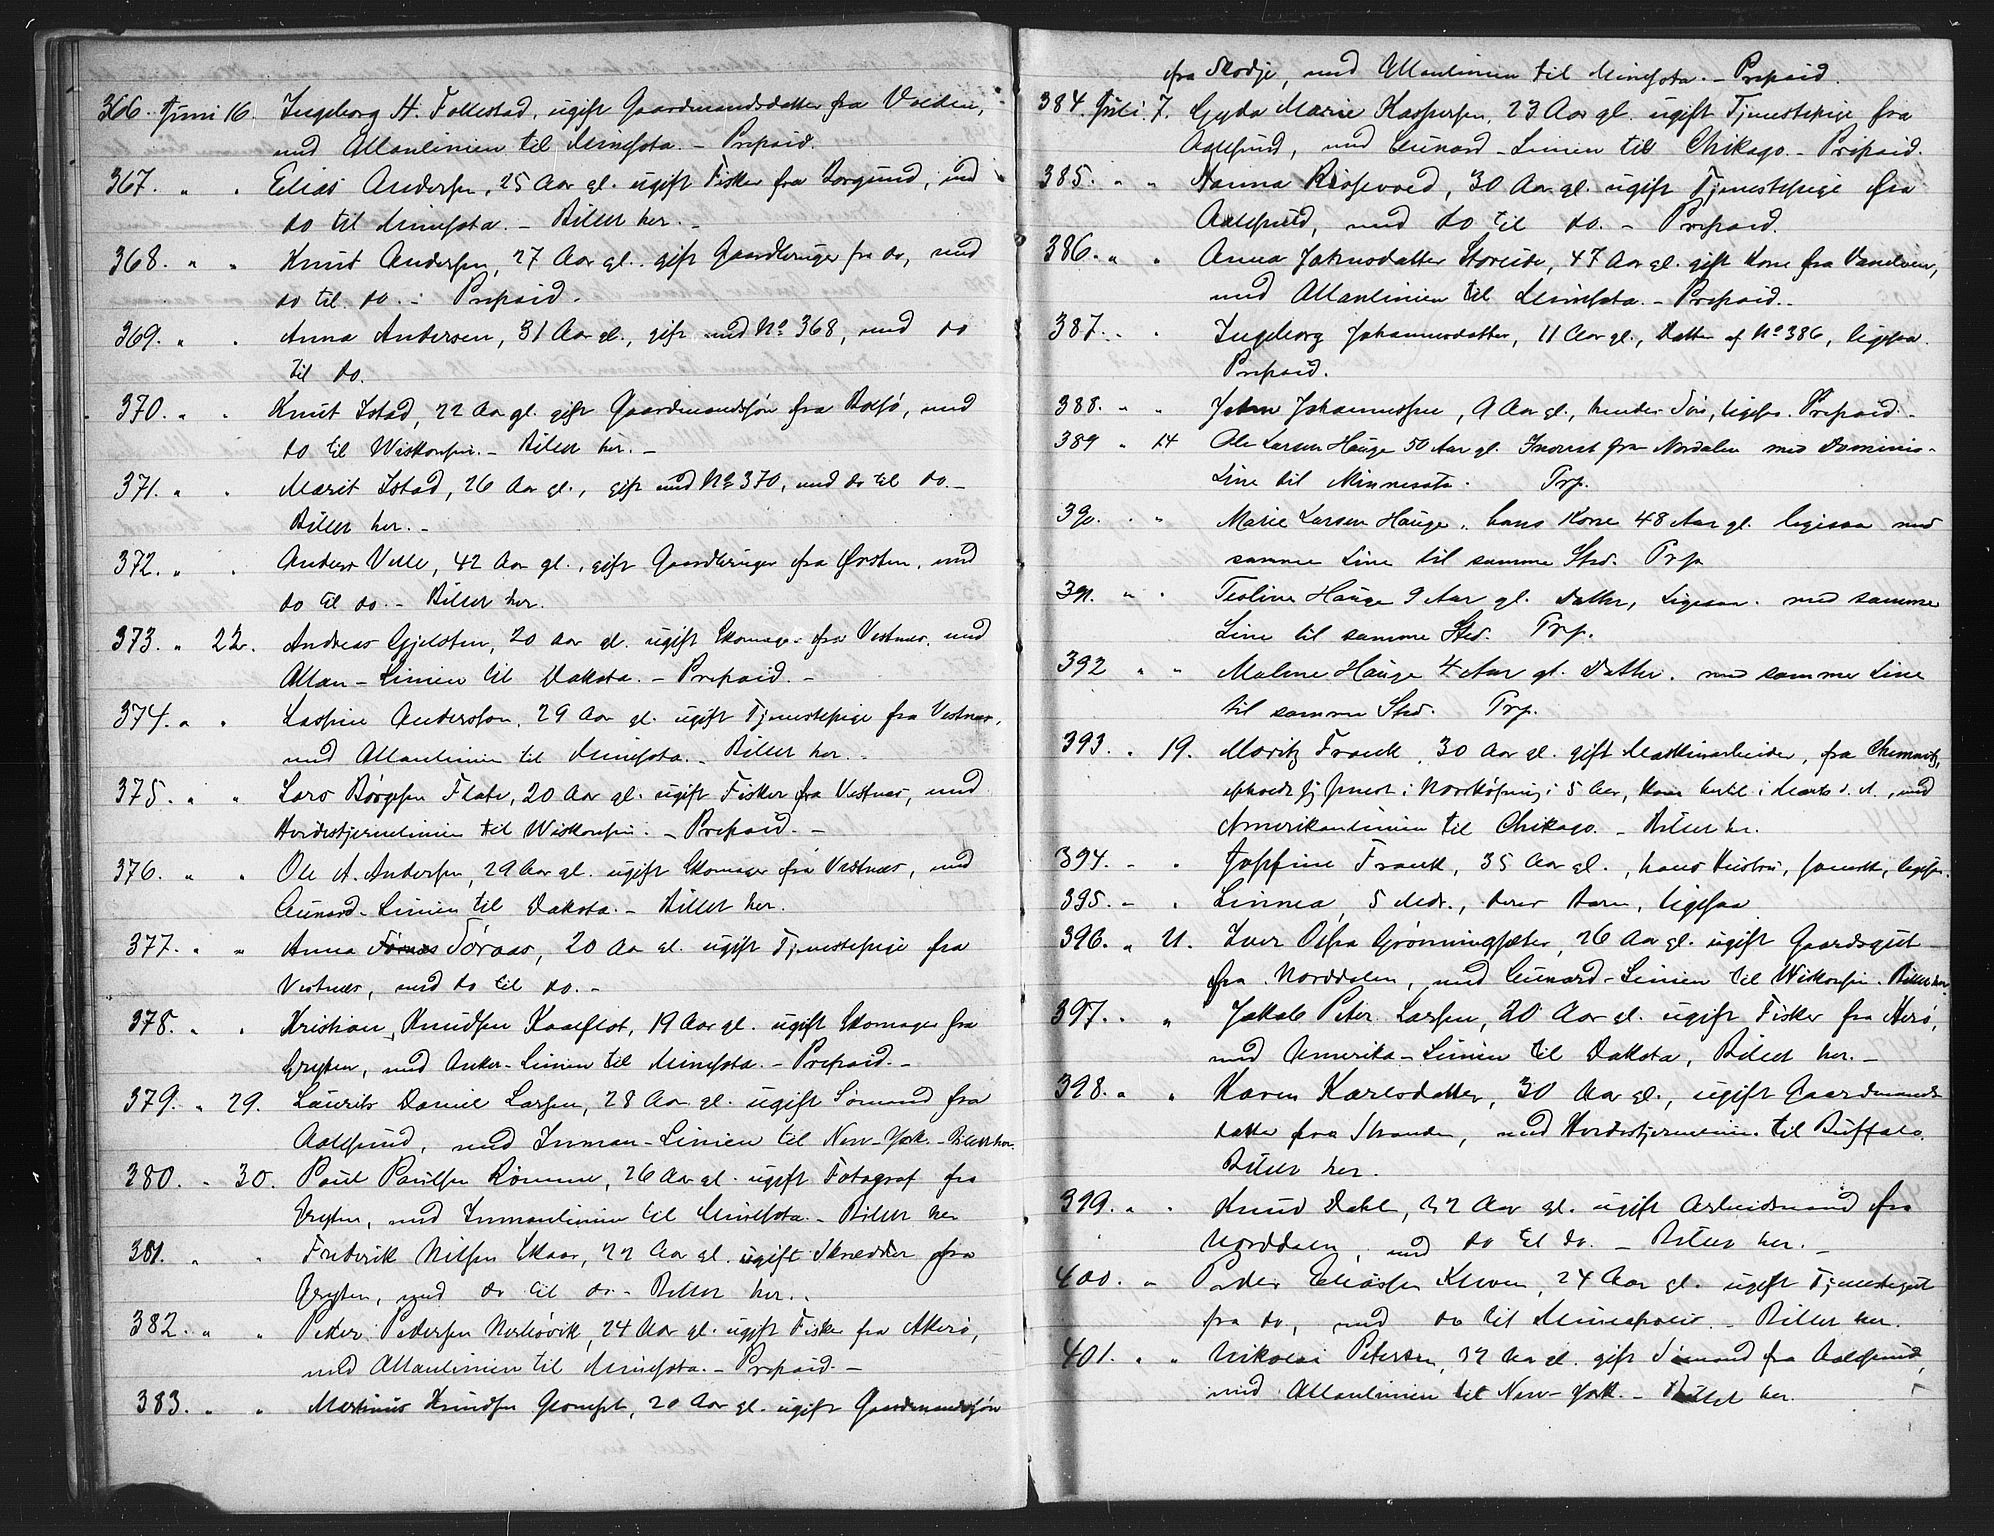 366. Juni 16. Ingeborg H. Follestad, ugift Gaardmandsdatter fra Volden,
med Allanlinien til Minesota. - Prepaid.
367. " " Elias Andersen, 25 Aar gl. ugift Fisker fra Borgund, med
do til Minesota. - Billet her. -
368. " " Knut Andersen, 27 Aar gl. gift Gaardbruger fra do, med
do til do. - Prepaid. -
369. " " Anna Andersen, 31 Aar gl., gift med No 368, med do
til do.
370. " " Knut Istad, 22 Aar gl. gift Gaardmandssøn fra Bolsø, med
do til Wiskonsin. - Billet her. -
371. " " Marit Istad, 26 Aar gl., gift med No 370, med do til do. -
Billet her. -
372. " " Anders Velle, 42 Aar gl., gift Gaardbruger fra Ørsten, med
do til do. - Billet her.
373. " 22. Andreas Gjelsten, 20 Aar gl. ugift Skomager fra Vestnæs, med
Allan-Linien til Dakota. - Prepaid. -
374. " " Andersson, 29 Aar gl. ugift Tjenestepige fra Vestnæs,
med Allanlinien til Minesota. - Billet her. -
375. " " Lars Børgesen Flate, 20 Aar gl. ugift Fisker fra Vestnæs, med
Hvidestjernelinien til Wiskonsin. - Prepaid. -
376. " " Ole A. Andersen, 29 Aar gl. ugift Skomager fra Vestnæs, med
Cunard-Linien til Dakota. - Billet her.
377. " " Anna Tøraas, 20 Aar gl. ugift Tjenestepige fra
Vestnæs, med do til do. -
378. " " Kristian Knudsen Kaalflot, 19 Aar gl. ugift Skomager fra
Grytten, med Anker-Linien til Minesota. - Prepaid. -
379. " 29. Laurits Daniel Larsen, 28 Aar gl. ugift Sømand fra
Aalesund, med Inman-Linien til New-York. - Billet her.
380. " 30. Paul Paulsen Rømme, 26 Aar gl. ugift Fotograf fra
Grytten, med Inmanlinien til Minesota. - Billet her
381. " " Frederik Nilsen Skaar, 22 Aar gl. ugift Skredder fra
Grytten, med do til do. - Billet her.
382. " " Peter Pedersen, 24 Aar gl. ugift Fisker fra Akerø,
med Allanlinien til Minesota. - Prepaid. -
383. " " Martinus Knudsen, 20 Aar gl. ugift Gaardmandssøn
fra Skodje, med Allanlinien til Minesota. - Prepaid.
384. Juli 7. Gyda Marie Kaspersen, 23 Aar gl. ugift Tjenestepige fra
Aalesund, med Cunard-Linien til Chikago. - Prepaid.
385. " " Nanna, 30 Aar gl. ugift Tjenestepige fra
Aalesund, med do til do. - Prepaid.
386. " " Anna Johnsdatter Storeide, 47 Aar gl. gift Kone fra Vanelven,
med Allanlinien til Minesota. - Prepaid. -
387. " " Ingeborg Johannesdatter, 11 Aar gl., Datter af No 386, ligesaa.
Prepaid.
388. " " John Johannessen, 9 Aar gl., hendes Søn, ligesaa. Prepaid. -
389 " 14 Ole Larsen Hauge 50 Aar gl. Inderst fra Nordalen med Dominio-
Line til Minnesota. Prp.
390. " " Marie Larsen Hauge. hans Kone 48 Aar gl. ligesaa med
samme Line til samme Sted. Prp
391. " " Hauge 9 Aar gl. Datter, Ligesaa. med samme
Line til samme Sted. Prp.
392 " " Malene Hauge 4 Aar gl. Datter. med samme Line
til samme Sted. Prp.
393. " 19. Moritz Franck, 30 Aar gl. gift Maskinarbeider, fra Chemnitz,
i Norrköping i 5 Aar, kom hertil i Marts d. A., med
Amerikanlinien til Chikago. - Billet her.
394. - " Josefine Franck, 35 Aar gl., hans Hustru, ligesaa.
395. - " Linnea, 5 Mdr., deres Barn, ligesaa
396. " 21. Iver Olsen Grønningsæter, 26 Aar gl. ugift Gaardsgut
fra Norddalen, med Cunard-Linien til Wiskonsin. Billet her.
397. " " Jakob Peter Larsen, 20 Aar gl. ugift Fisker fra Herø,
med Amerika-Linien til Dakota, Billet her. -
398. " " Karen Karlsdatter, 30 Aar gl., ugift Gaardmands-
datter fra Stranden, med Hvidestjernelinien til Buffalo.
Billet her.
399. " " Knud Dahl, 32 Aar gl. ugift Arbeidsmand fra
Norddalen, med do til do. - Billet her. -
400. " Peder Eliassen Kleven, 24 Aar gl. ugift Tjenestegut
fra do, med do til Mineapolis. - Billet her.
401. " " Nikolai Petersen, 32 Aar gl. gift Sømand fra Aalesund,
med Allanlinien til New-York. - Billet her.